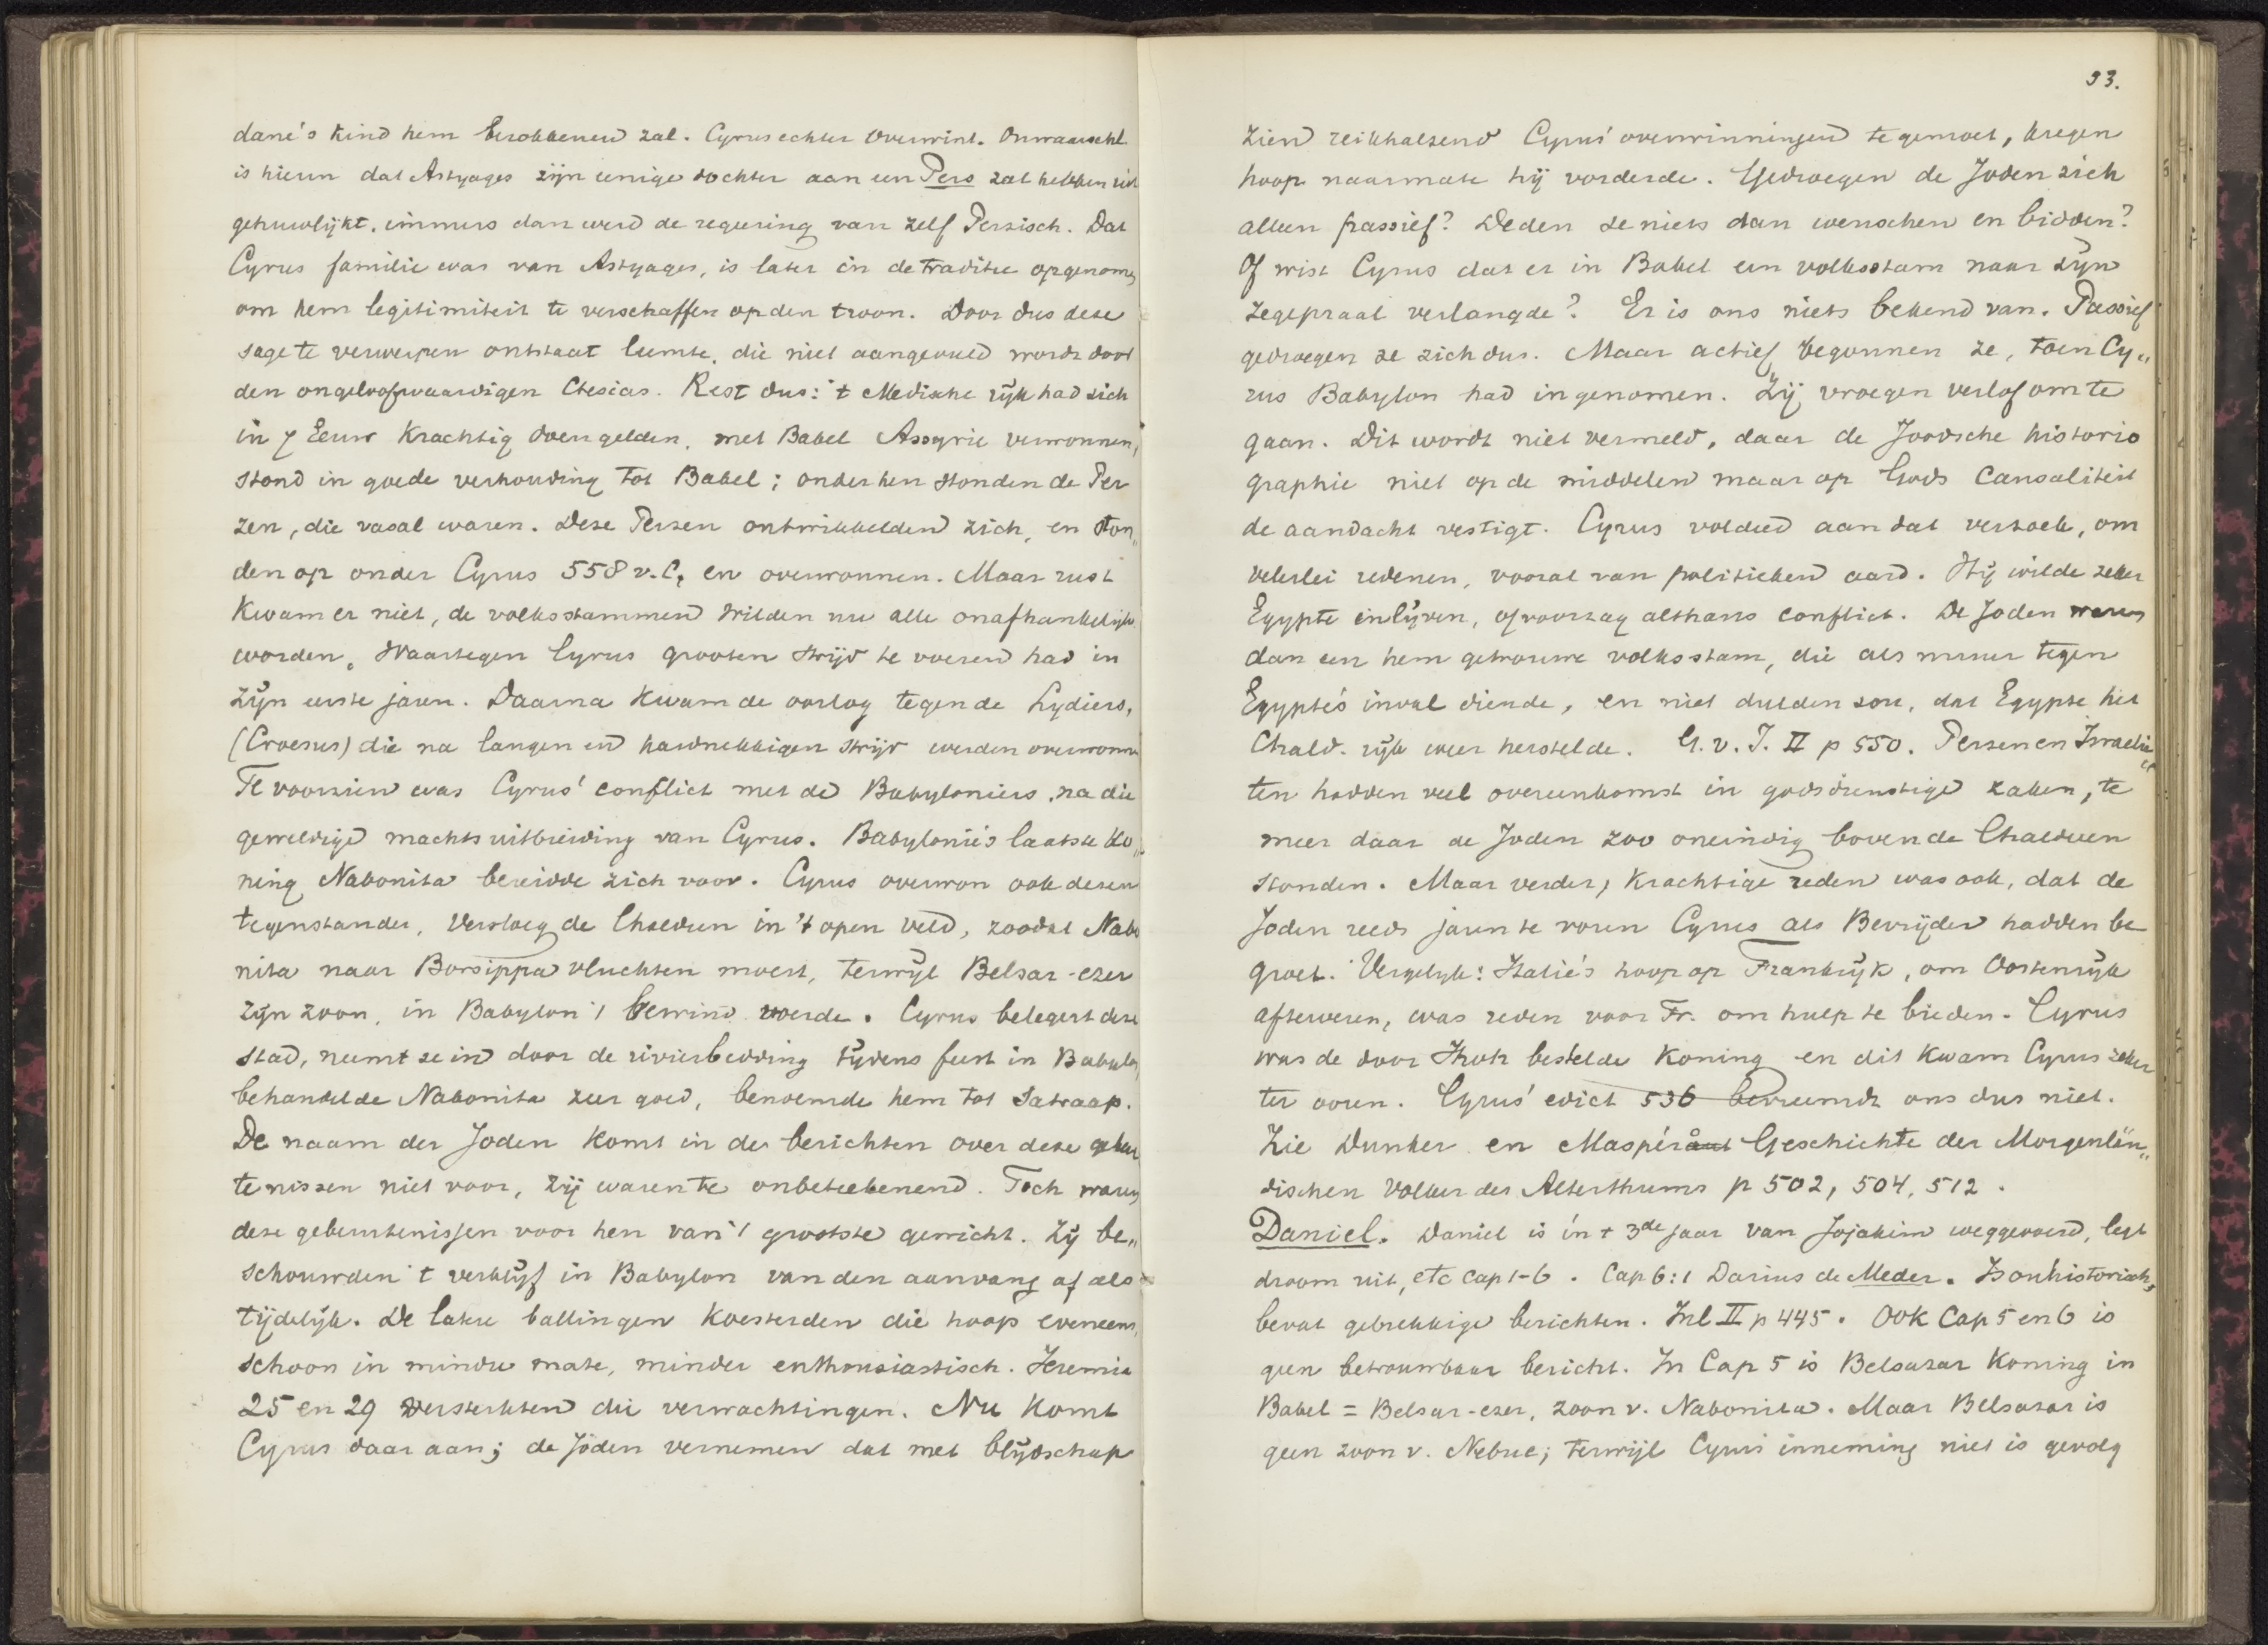 dane's kind hem onttroonen zal. Cyrus echter overwint. Onwaarschl.
is hierin dat Astyages zijn eenige dochter aan een Pers zal hebben uit
gehuwlijkt, immers dan werd de regeering van zelf Perzisch. Dat
Cyrus familie was van Astyages, is later in de traditie opgenomen
om hem legitimiteit te verschaffen op den troon. Door dus deze
sage te verwerpen ontstaat leemte, die niet aangevuld wordt door
den ongeloofwaardigen Ctesias. Rest dus: 't Medische rijk had zich
in 7 Eeuw krachtig doen gelden, met Babel Assyrie verwonnen,
stond in goede verhouding tot Babel; onder hen stonden de Per
zen, die vasal waren. Deze Perzen ontwikkelden zich, en ston„
den op onder Cyrus 558 v.C. en overwonnen. Maar rust
kwam er niet, de volksstammen wilden nu alle onafhankelijk
worden, waartegen Cyrus grooten strijd te voeren had in
zijn eerste jaren. Daarna kwam de oorlog tegen de Lydiers,
(Croesus) die na langen en hardnekkigen strijd werden overwonnen
Te voorzien was Cyrus' conflict met de Babyloniers, na die
geweldige machtsuitbreiding van Cyrus. Babylonie's laatste Ko„
ning Nabonita bereidde zich voor. Cyrus overwon ook dezen
tegenstander, versloeg de Chaldeen in 't open veld, zoodat Nabo
nita naar Borsippa vluchten moest, terwijl Belsar-ezer
zijn zoon, in Babylon 't bewind voerde. Cyrus belegert deze
stad, neemt ze in door de rivierbedding tijdens feest in Babylon,
behandelde Nabonita zeer goed, benoemde hem tot Satraap.
De naam der Joden komt in de berichten over deze gebeur
tenissen niet voor, zij waren te onbeteekenend. Toch waren
deze gebeurtenissen voor hen van 't grootste gewicht. Zij be„
schouwden 't verblijf in Babylon van den aanvang af als
tijdelijk. De latere ballingen koesterden die hoop eveneens,
schoon in mindre mate, minder enthousiastisch. Jeremia
25 en 29 versterkten die verwachtingen. Nu komt
Cyrus daar aan; de Joden vernemen dat met blijdschap
93.
zien reikhalzend Cyrus' overwinningen te gemoet, kregen
hoop naarmate hij vorderde. Gedroegen de Joden zich
alleen passief? Deden ze niets dan wenschen en bidden?
Of wist Cyrus dat er in Babel een volksstam naar zijn
zegepraal verlangde? Er is ons niets bekend van. Passief
gedroegen ze zich dus. Maar actief begonnen ze, toen Cy„
rus Babylon had ingenomen. Zij vroegen verlof om te
gaan. Dit wordt niet vermeld, daar de Joodsche historio
graphie niet op de middelen maar op Gods Causaliteit
de aandacht vestigt. Cyrus voldeed aan dat verzoek, om
velerlei redenen, vooral van politieken aard. Hij wilde zeker
Egypte inlijven, of voorzag althans conflict. De Joden waren
dan een hem getrouwe volksstam, die als muur tegen
Egypte's inval diende, en niet dulden zou, dat Egypte het
Chald. rijk weer herstelde. G.v.I. II p 550. Perzen en Israelie
ten hadden veel overeenkomst in godsdienstige zaken, te
meer daar de Joden zoo oneindig boven de Chaldeen
stonden. Maar verder, krachtige reden was ook, dat de
Joden reeds jaren te voren Cyrus als Bevrijder hadden be
groet. Vergelijk: Italie's hoop op Frankrijk, om Oostenrijk
afteweren, was reden voor Fr. om hulp te bieden. Cyrus
was de door Jhvh bestelde Koning en dit kwam Cyrus zeker
ter ooren. Cyrus' edict 536 bevreemdt ons dus niet.
Zie Dunker en Maspéro Geschichte der Morgenlän„
dischen Volker des Alterthums p 502, 504, 512.
Daniel. Daniel is in 't 3de jaar van Jojakim weggevoerd, legt
droom uit, etc cap 1-6. Cap 6:1 Darius de Meder. Is onhistorisch,
bevat gebrekkige berichten. Inl II p 445. Ook Cap 5 en 6 is
geen betrouwbaar bericht. In Cap 5 is Belsazar Koning in
Babel = Belsar-ezer, zoon v. Nabonita. Maar Belsazar is
geen zoon v. Nebuc; terwijl Cyrus inneming niet is gevolg